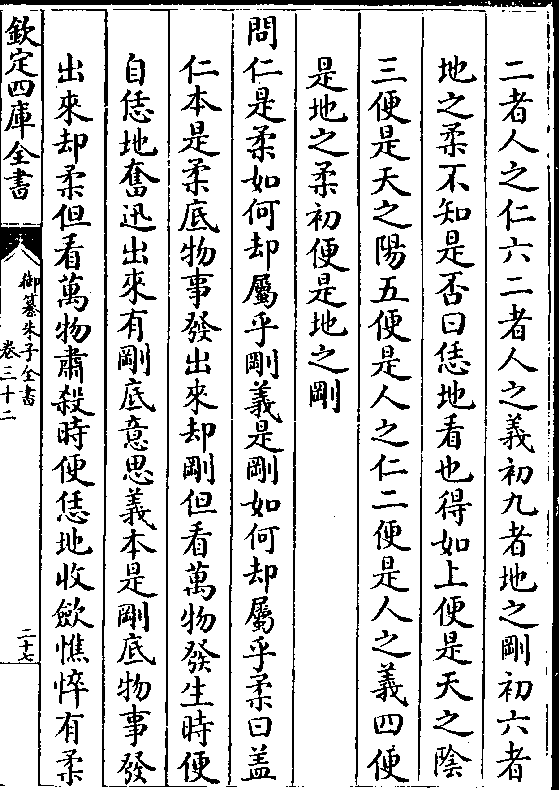 二者人之仁六二者人之義初九者地之剛初六者
地之柔不知是否曰恁地看也得如上便是天之陰
三便是天之陽五便是人之仁二便是人之義四便
是地之柔初便是地之剛
問仁是柔如何却屬乎剛義是剛如何却屬乎柔曰盖
仁本是柔底物事發出來却剛但看萬物發生時便
自恁地奮迅出來有剛底意思義本是剛底物事發
出來却柔但看萬物肅殺時便恁地收斂憔悴有柔
欽定四庫全書
御纂朱子全書
卷三十二
二十七